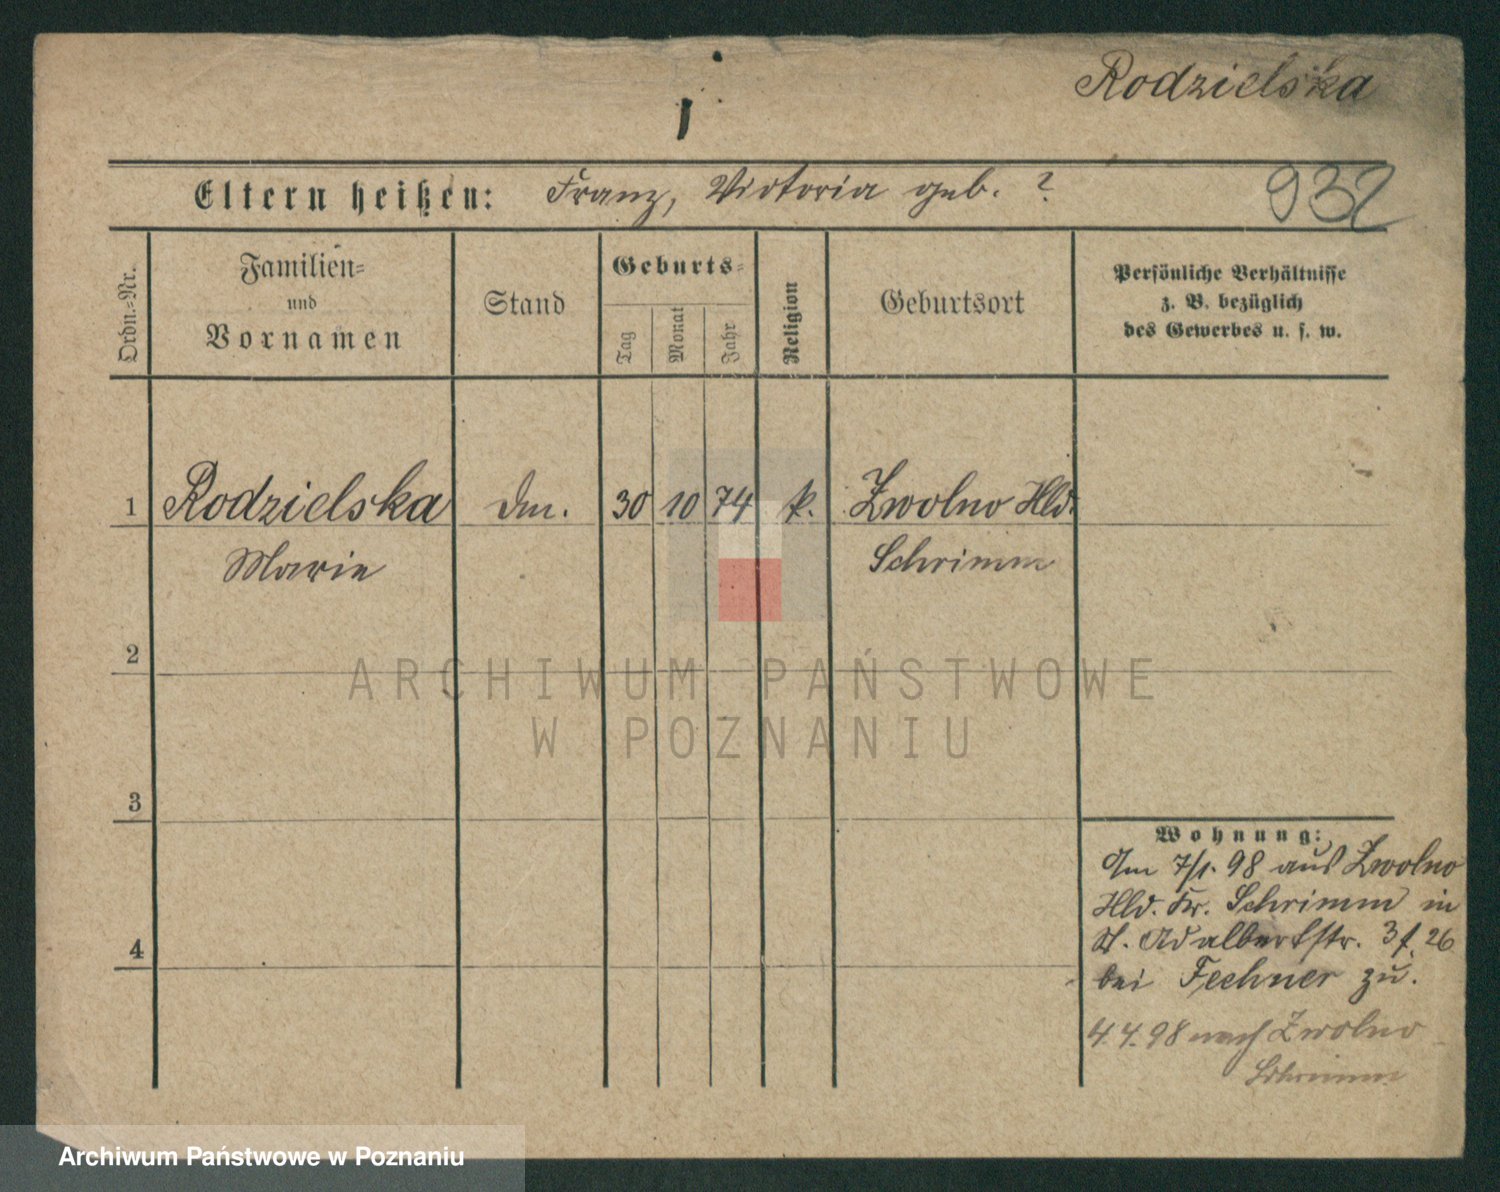 Rodzielska
Eltern heißen: Franz, Victoria geb. ?
932
Ordn.=Nr.
Familien=
und
Vornamen
Stand
Geburts=
Tag
Monat
Jahr
Religion
Geburtsort
Persönliche Verhältnisse
z. B. bezüglich
des Gewerbes u. s. w.
1 Rodzielska 30 10 74 k. Zwolno Hld.
Marie Schrimm
2
3
4
Wohnung:
Am 7/1. 98 aus Zwolno
Hld. Kr. Schrimm in
St. Adalbertstr. 26
bei Fechner zu.
4. 4. 98 nach Zwolno
Schrimm
ARCHIWUM PAŃSTWOWE
W POZNANIU
Archiwum Państwowe w Poznaniu